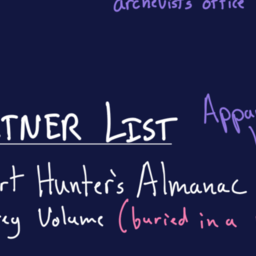 archevist's office
TNER LIST
Appa
rt Hunter's Almanac
ey Volume (buried in a